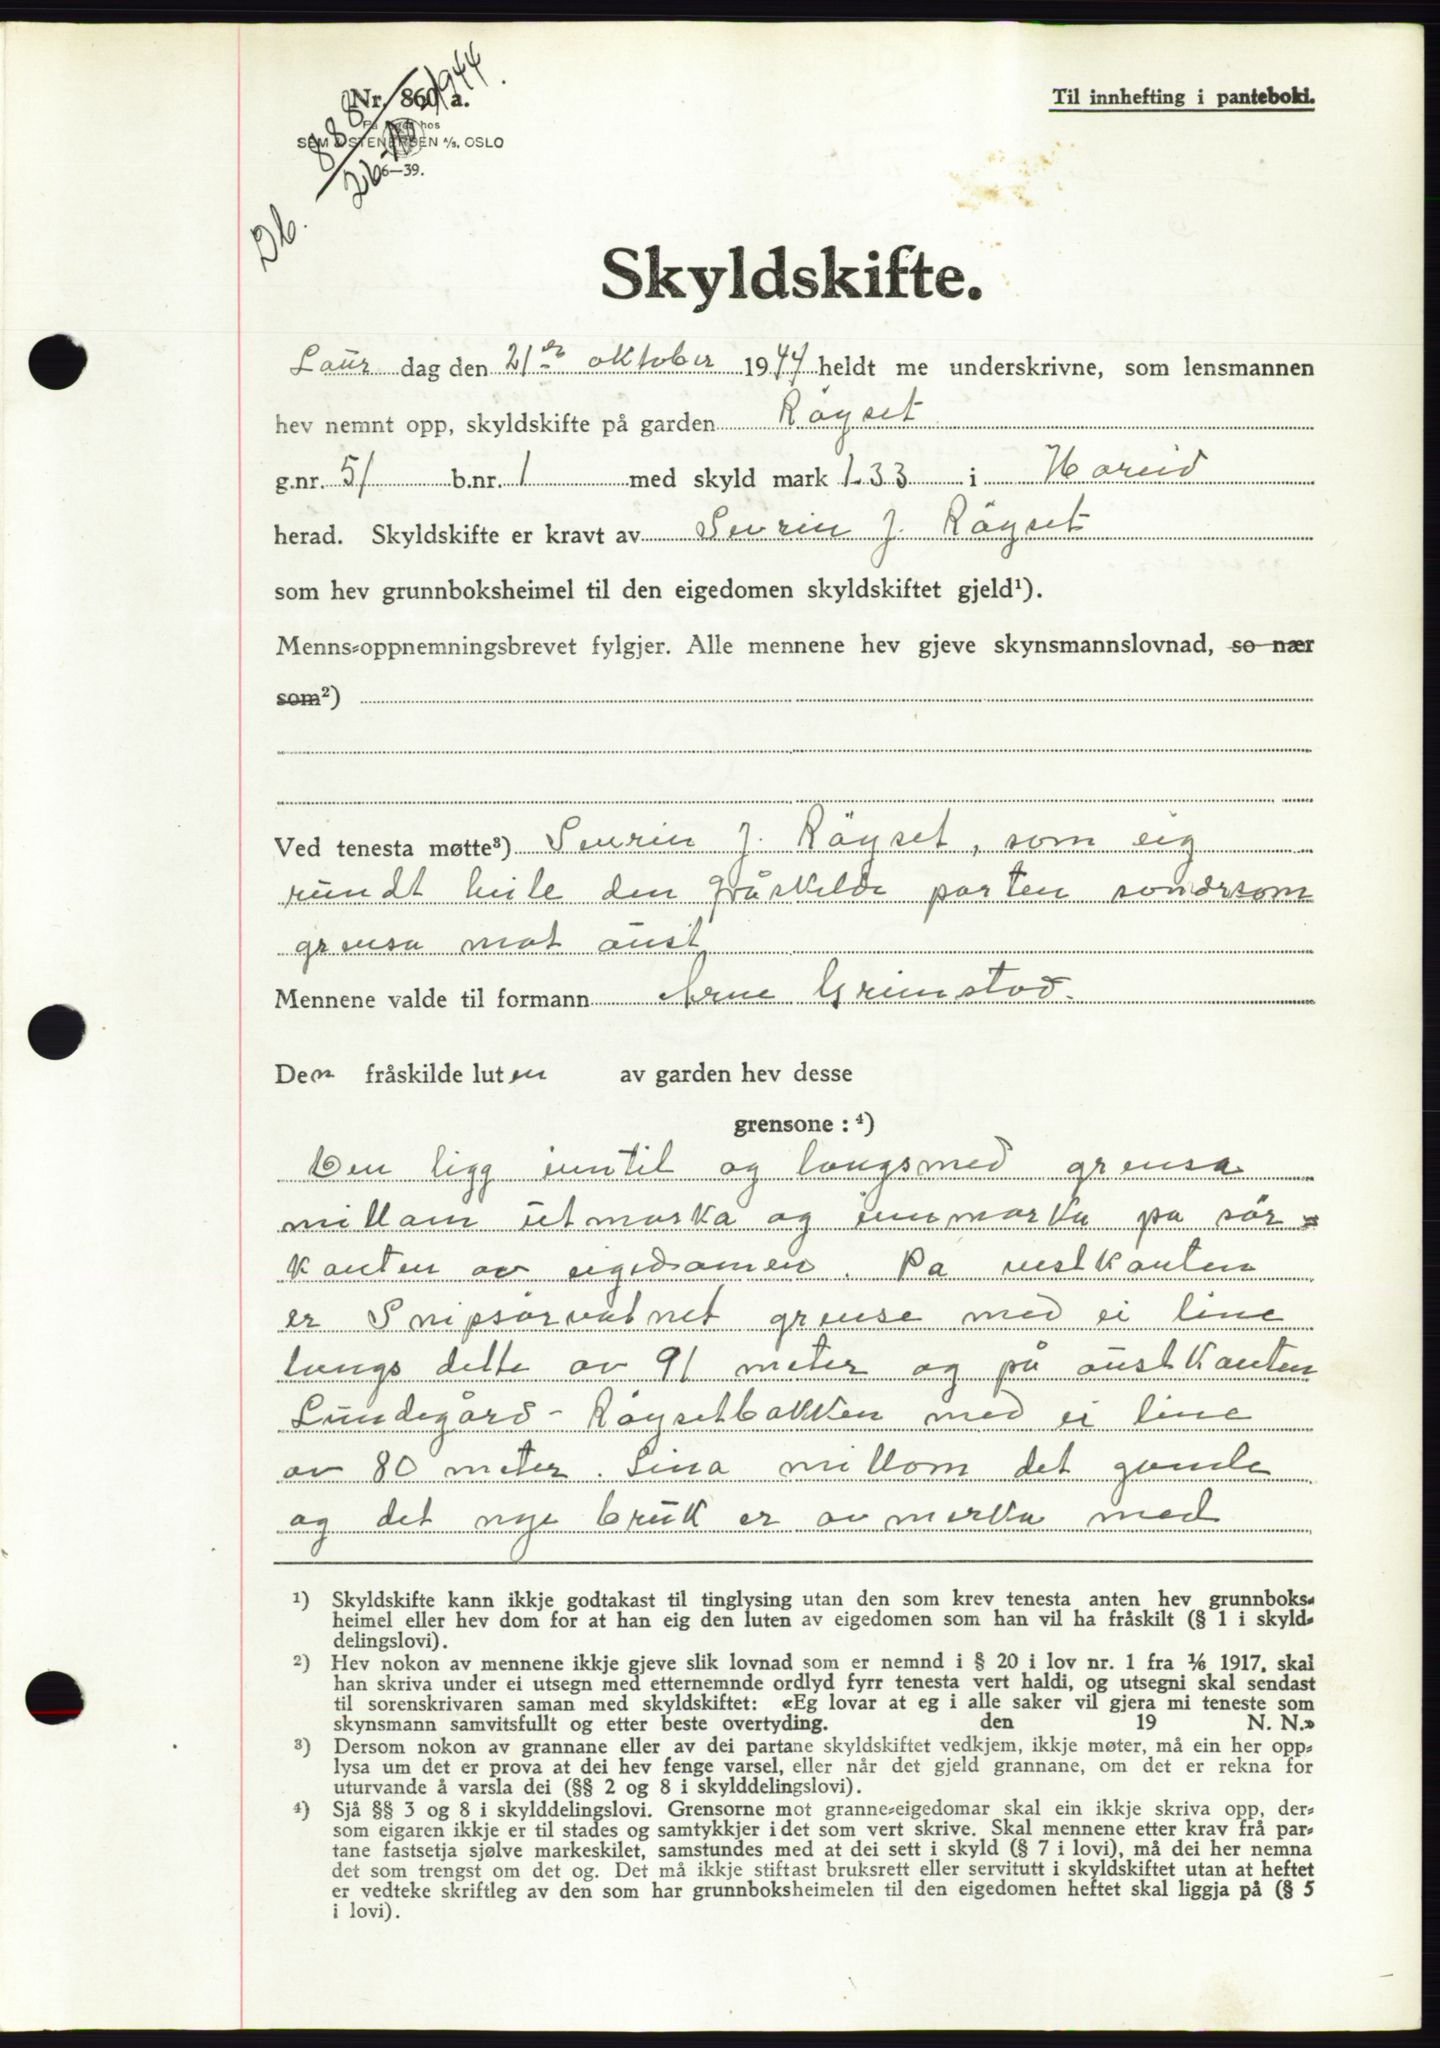 Db. 888/1944.
Nr. 860 a.
På lager hos
SEM & STENERSEN A/S, OSLO
6—39.
Til innhefting i panteboki.
Skyldskifte.
Laur dag den 21er oktober 1944 heldt me underskrivne, som lensmannen
hev nemnt opp, skyldskifte på garden Röyset
g.nr. 51 b.nr. 1 med skyld mark 1.33 i Hareid
herad. Skyldskifte er kravt av Sevrin J. Röyset
som hev grunnboksheimel til den eigedomen skyldskiftet gjeld¹).
Menns-oppnemningsbrevet fylgjer. Alle mennene hev gjeve skynsmannslovnad, so nær
som²)
Ved tenesta møtte³) Sevrin J. Röyset, som eig
rundt heile den fråskilde parten sønærsom
grensa mot aust
Mennene valde til formann Arne Grimstad.
Den fråskilde luten av garden hev desse
grensone : ⁴)
Den ligg inntil og langsmed grensa
millom utmarka og innmarka på sör-
kanten av eigedomen. På vestkanten
er Snipsörvatnet grense med ei line
langs dette av 91 meter og på austkanten
Lundegård - Röysetbakken med ei line
av 80 meter. Lina millom det gamle
og det nye bruk er avmerka med
¹) Skyldskifte kann ikkje godtakast til tinglysing utan den som krev tenesta anten hev grunnboks-
heimel eller hev dom for at han eig den luten av eigedomen som han vil ha fråskilt (§ 1 i skyld-
delingslovi).
²) Hev nokon av mennene ikkje gjeve slik lovnad som er nemnd i § 20 i lov nr. 1 fra 1/6 1917, skal
han skriva under ei utsegn med etternemnde ordlyd fyrr tenesta vert haldi, og utsegni skal sendast
til sorenskrivaren saman med skyldskiftet: «Eg lovar at eg i alle saker vil gjera mi teneste som
skynsmann samvitsfullt og etter beste overtyding. den 19 N. N.»
³) Dersom nokon av grannane eller av dei partane skyldskiftet vedkjem, ikkje møter, må ein her opp-
lysa um det er prova at dei hev fenge varsel, eller når det gjeld grannane, om det er rekna for
uturvande å varsla dei (§§ 2 og 8 i skylddelingslovi).
⁴) Sjå §§ 3 og 8 i skylddelingslovi. Grensorne mot granne-eigedomar skal ein ikkje skriva opp, der-
som eigaren ikkje er til stades og samtykkjer i det som vert skrive. Skal mennene etter krav frå par-
tane fastsetja sjølve markeskilet, samstundes med at dei sett i skyld (§ 7 i lovi), må dei her nemna
det som trengst om det og. Det må ikkje stiftast bruksrett eller servitutt i skyldskiftet utan at heftet
er vedteke skriftleg av den som har grunnboksheimelen til den eigedomen heftet skal liggja på (§ 5
i lovi).